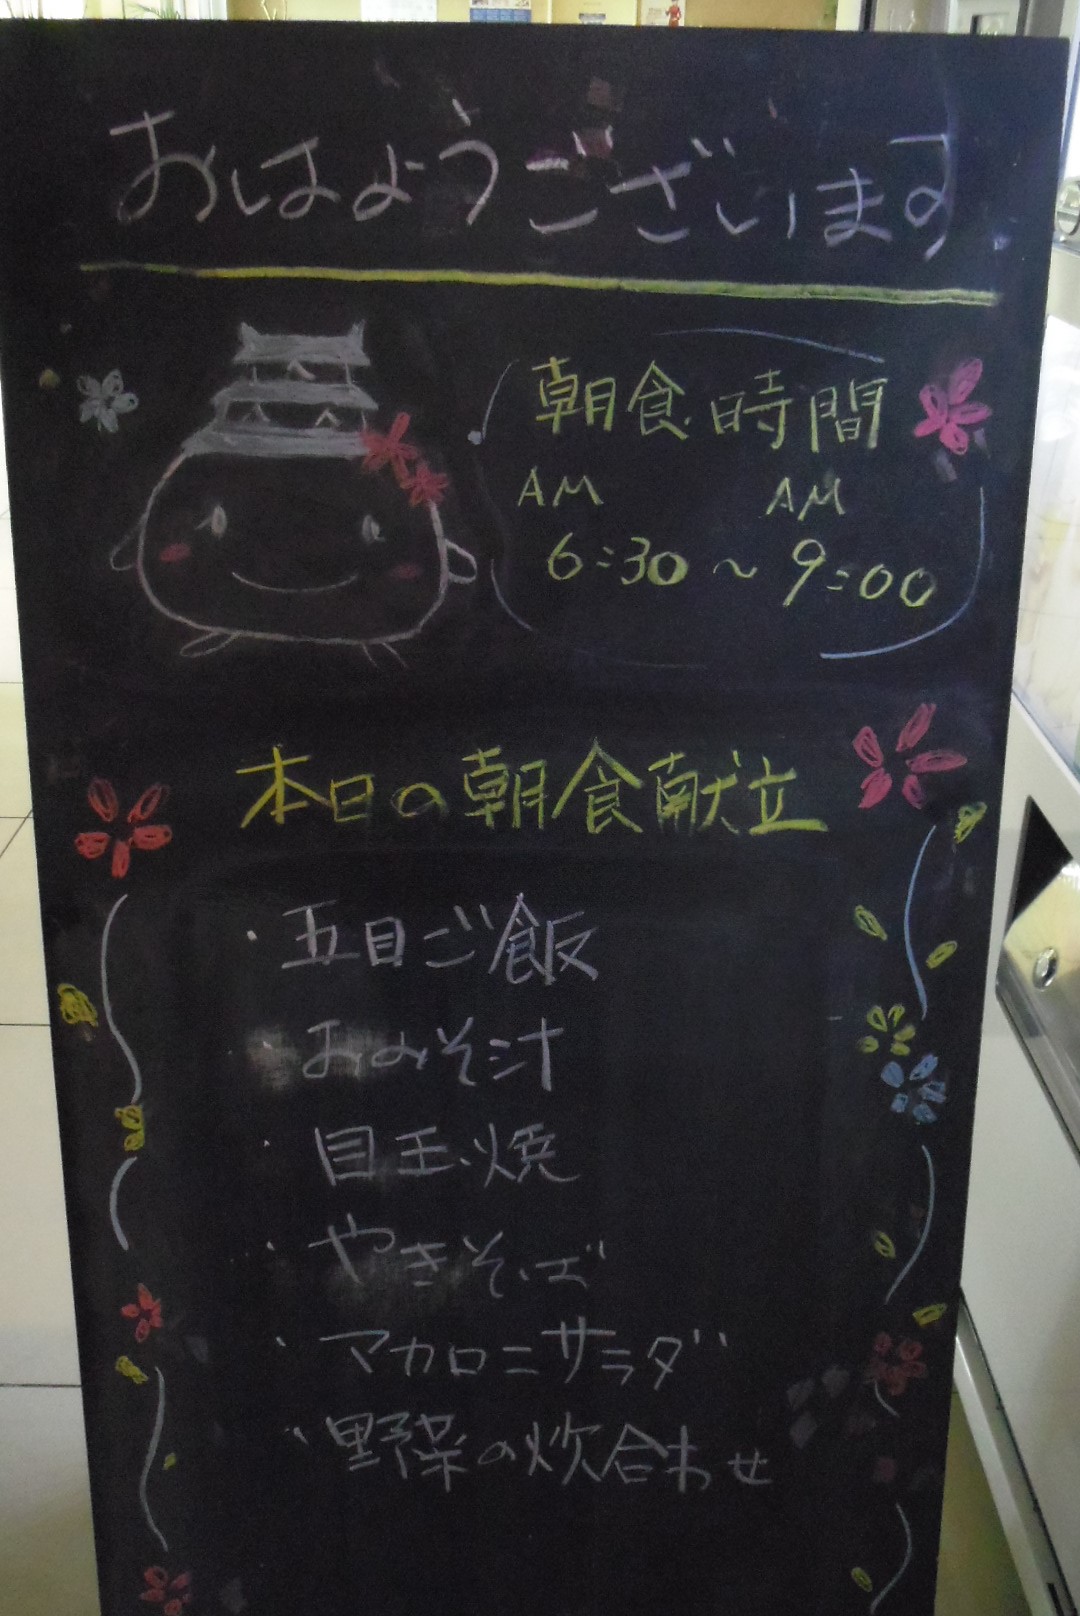 おはようございます
朝食時間
AM AM
6:30～9:00
本日の朝食献立
・五目ご飯
・おみそ汁
・目玉焼
・やきそば
・マカロニサラダ
・野菜の炊合わせ